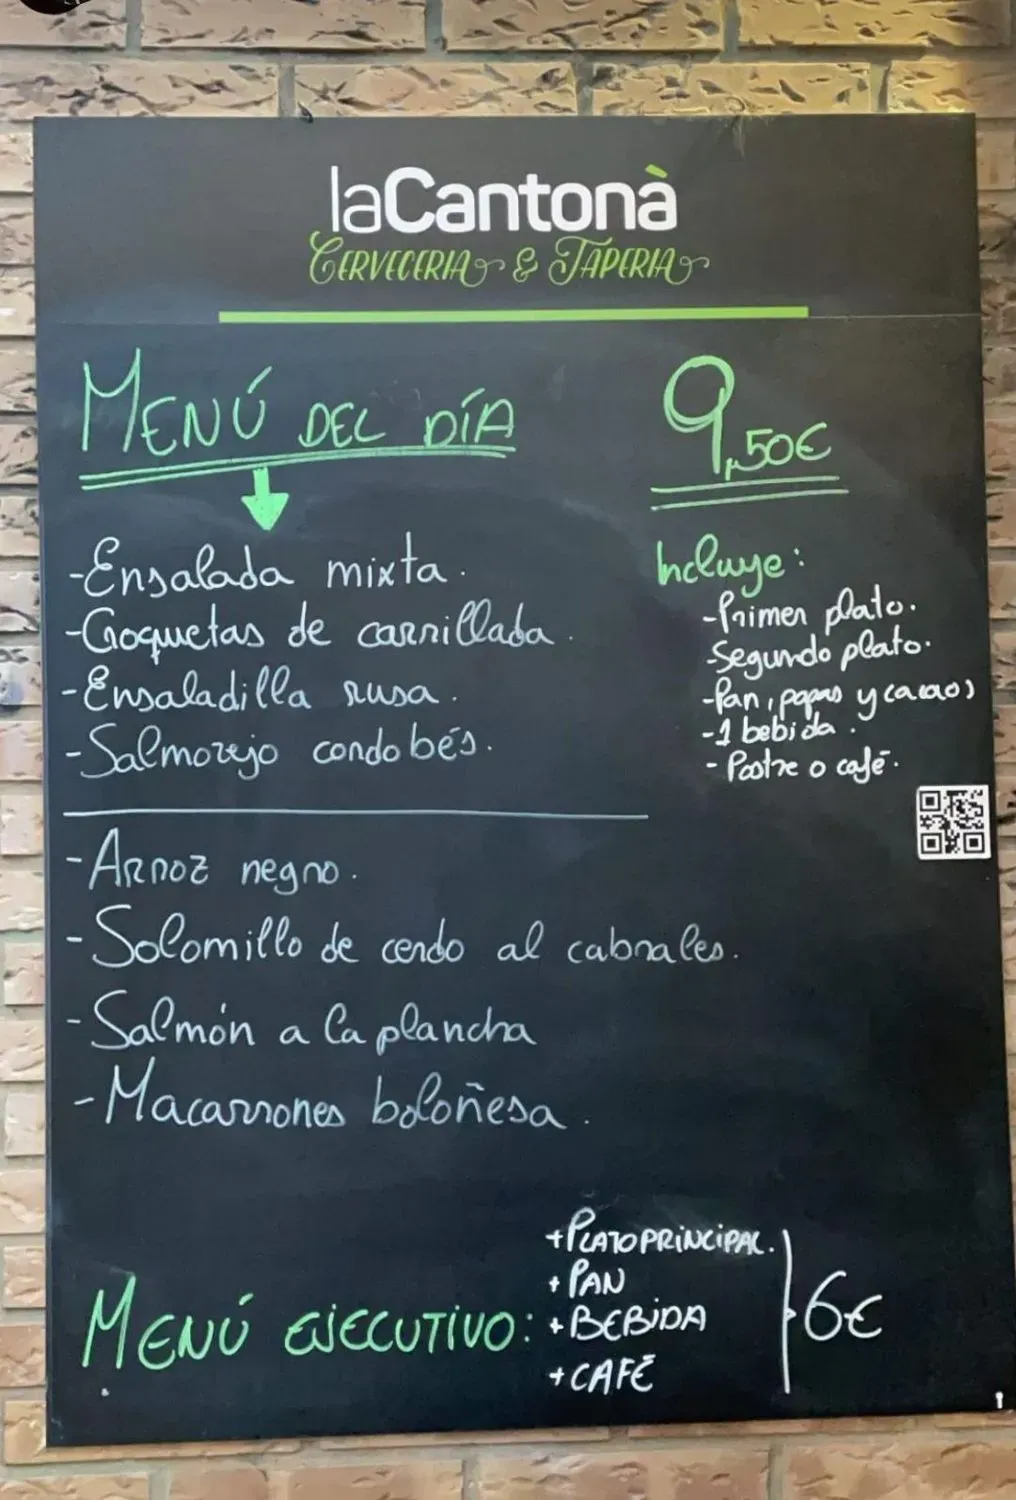 laCantonà
CERVECERIA & TAPERIA
MENÚ DEL DÍA
9,50€
-Ensalada mixta.
-Croquetas de carrillada.
-Ensaladilla rusa.
-Salmorejo cordobés.
Incluye:
-Primer plato.
-Segundo plato.
-Pan, papas y cacaos
-1 bebida.
-Postre o café.
-Arroz negro.
-Solomillo de cerdo al cabrales.
-Salmón a la plancha
-Macarrones boloñesa.
MENÚ EJECUTIVO:
+PLATO PRINCIPAL.
+PAN
+BEBIDA
+CAFÉ
6€